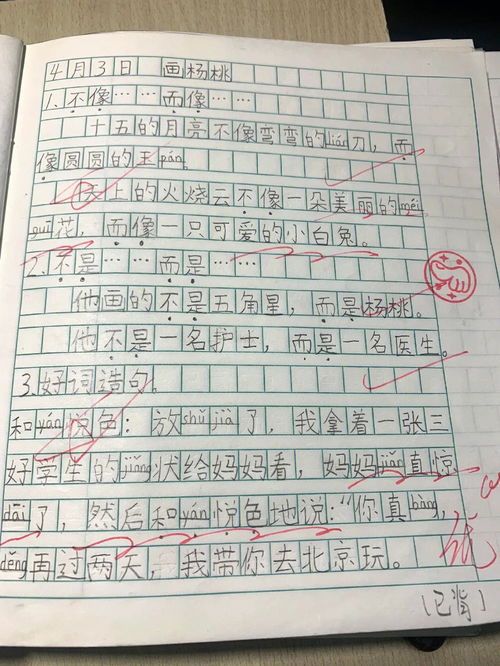 4月3日 画杨桃
1.不像……而像……
十五的月亮不像弯弯的lián刀，而
像圆圆的玉pán。
天上的火烧云不像一朵美丽的méi
guī花，而像一只可爱的小白兔。
2.不是……而是……
他画的不是五角星，而是杨桃。
他不是一名护士，而是一名医生。
3.好词造句。
和yán悦色：放shǔ jià了，我拿着一张三
好学生的jiǎng状给妈妈看，妈妈jiǎn直惊
dāi了，然后和yán悦色地说："你真bàng，
děng再过两天，我带你去北京玩。
优
(已背)